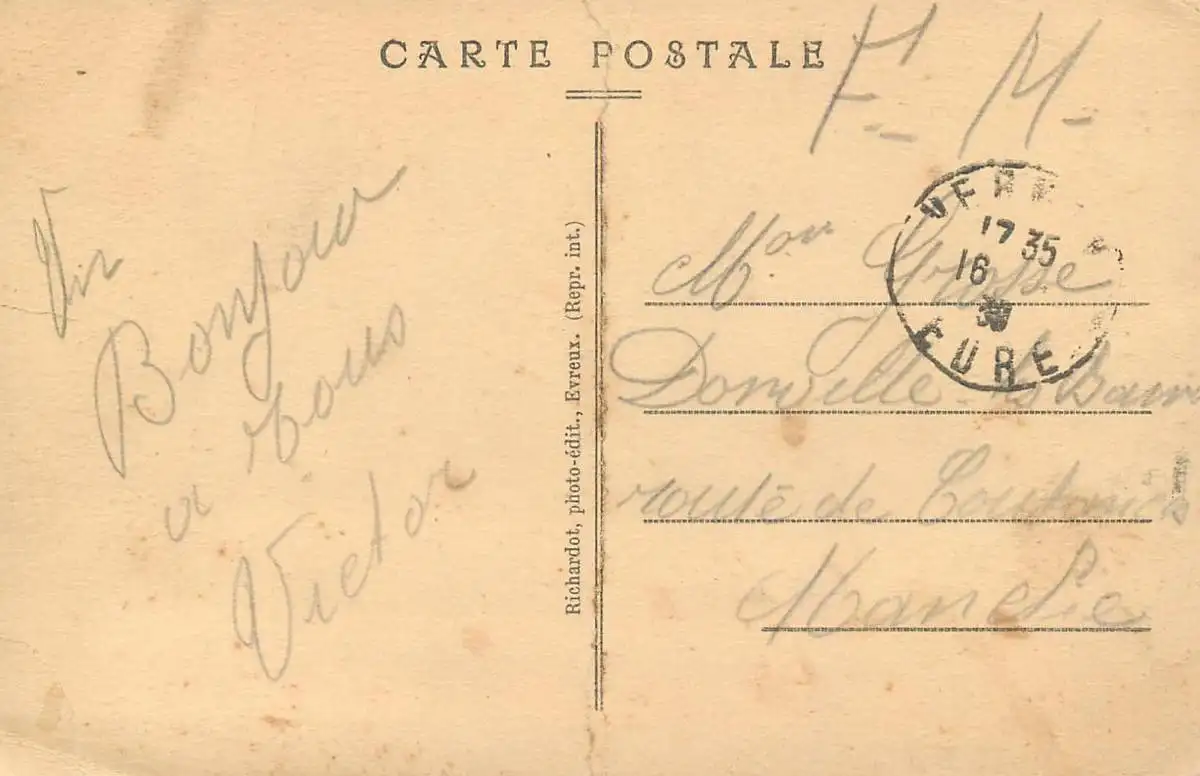 CARTE POSTALE
F. M.
Bonjour
a tous
Victor
Richardot, photo-édit., Evreux. (Repr. int.)
17 35
16
EURE
Donville-les-Bains
route de
Manche